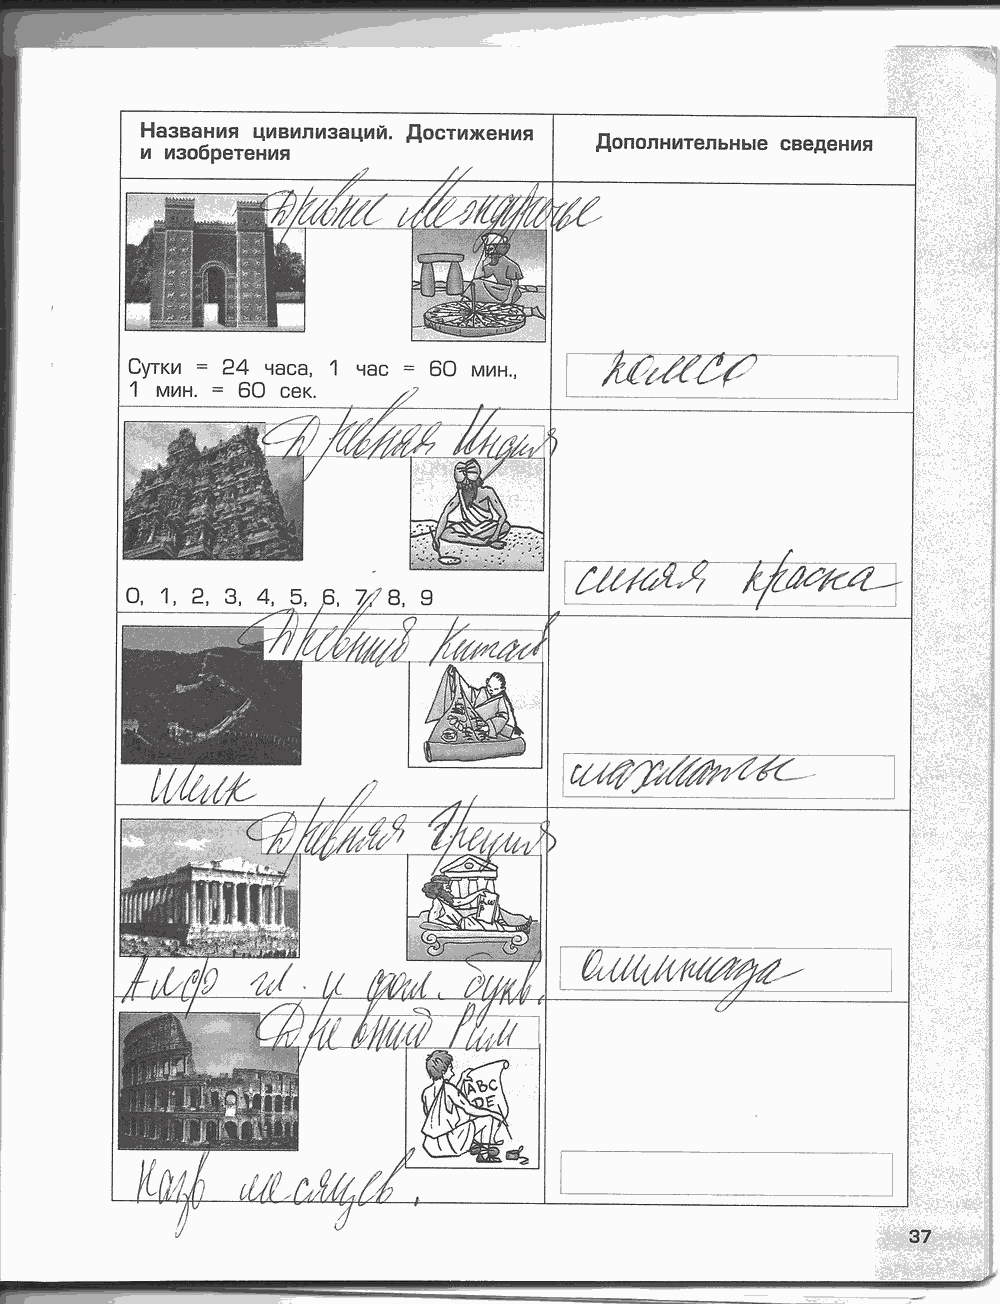 Названия цивилизаций. Достижения
и изобретения
Дополнительные сведения
Древнее Междуречье
Сутки = 24 часа, 1 час = 60 мин.,
1 мин. = 60 сек.
колесо
Древняя Индия
0, 1, 2, 3, 4, 5, 6, 7, 8, 9
синяя краска
Древний Китай
Шелк
шахматы
Древняя Греция
Алф гл. и согл. букв.
олимпиада
Древний Рим
ABC
DE
Назв месяцев.
37